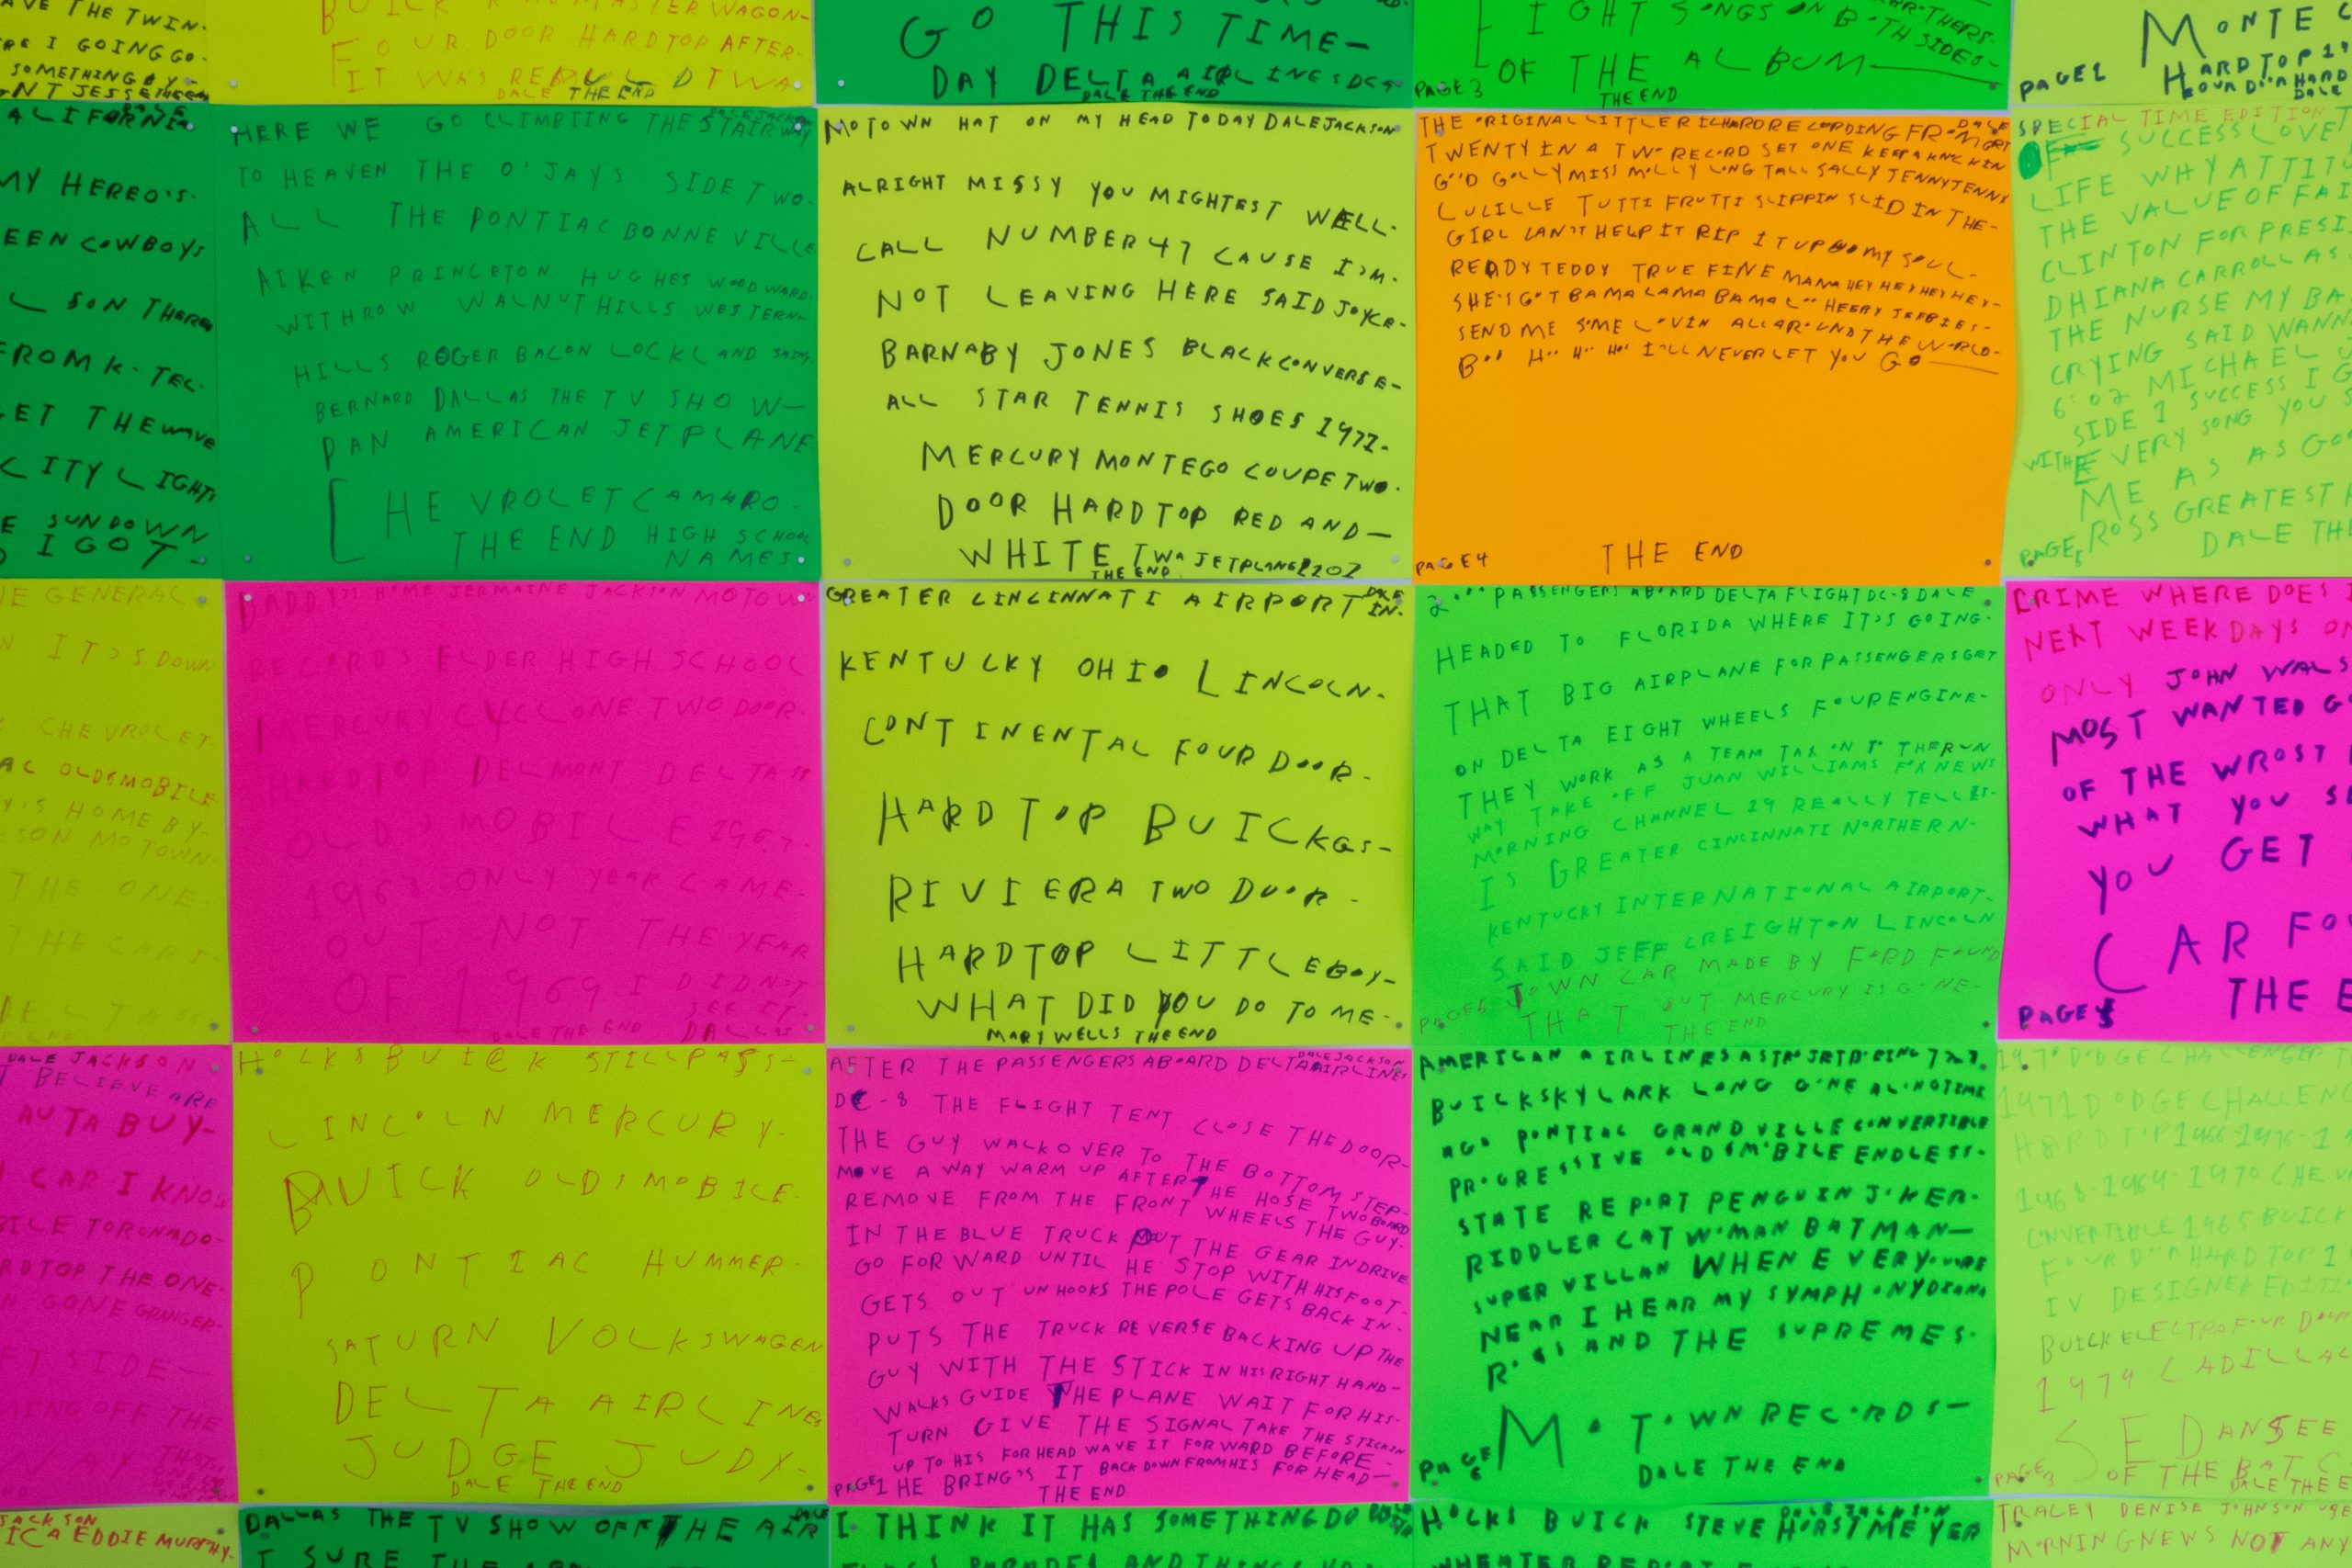 AVE THE TWIN-
RE I GOING GO-
SOMETHING BY-
BUICK ROADMASTER WAGON-
FOUR DOOR HARDTOP AFTER-
IT WAS
DALE THE END
GO THIS TIME-
DAY DELTA AIRLINES DC9
DALE THE END
EIGHT SONGS ON BOTH SIDES-
OF THE ALBUM
PAGE 3
THE END
MONTE C
HARDTOP 19
FOUR DOOR HARD
PAGE 2
DALE
DALE
ALIFORNIA
MY HEREO'S-
EEN COWBOYS
L SON THERE
FROM K-TEL-
GET THE WAVE
CITY LIGHTS
E SUNDOWN
D I GOT-
DALE JACKSON
HERE WE GO CLIMBIING THE STAIRWAY
TO HEAVEN THE O'JAYS SIDE TWO-
ALL THE PONTIAC BONNEVILLE
AIKEN PRINCETON HUGHES WOODWARD-
WITHROW WALNUT HILLS WESTERN-
HILLS ROGER BACON LOCKLAND SAINT-
BERNARD DALLAS THE TV SHOW-
PAN AMERICAN JET PLANE-
CHEVROLET CAMARO-
THE END HIGH SCHOOL
NAMES-
MOTOWN HAT ON MY HEAD TODAY DALE JACKSON
ALRIGHT MISSY YOU MIGHTEST WELL-
CALL NUMBER 47 CAUSE I'M-
NOT LEAVING HERE SAID JOYCE-
BARNABY JONES BLACK CONVERSE-
ALL STAR TENNIS SHOES 1972-
MERCURY MONTEGO COUPE TWO-
DOOR HARDTOP RED AND-
WHITE TWA JETPLANE 2207
THE END
DALE
THE ORIGINAL LITTLE RICHARD RECORDING FROM GRT
TWENTY IN A TWO RECORD SET ONE KEEP A KNCKIN
GOOD GOLLY MISS MOLLY LONG TALL SALLY JENNY JENNY
LULILLE TUTTI FRUTTI SLIPPIN SLID IN THE-
GIRL CAN'T HELP IT RIP IT UP OO MY SOUL-
READY TEDDY TRUE FINE MAMA HEY HEY HEY HEY-
SHE'S GOT BAMA LAMA BAMA LOO HEEBY JEEBIES-
SEND ME SOME LOVIN ALL AROUND THE WORLD-
BOO HOO HOO HOO I'LL NEVER LET YOU GO
PAGE 4
THE END
SPECIAL TIME EDITION
OF SUCCESS LOVE
LIFE WHY ATTIT
THE VALUE OF FAI
CLINTON FOR PRESI
DHIANA CARROLL AS
THE NURSE MY BA
CRYING SAID WANN
6:02 MICHAEL J
SIDE 1 SUCCESS I G
WITH EVERY SONG YOU S
ME AS AS GOO
ROSS GREATEST H
PAGE 5
DALE TH
E GENERAL
N IT'S DOWN
CHEVROLET-
AC OLDSMOBILE-
Y'S HOME BY-
SON MOTOWN
THE ONE-
THE CAR I-
DELTA 88
DADDY'S HOME JERMAINE JACKSON MOTOWN
RECORDS ELDER HIGH SCHOOL
MERCURY CYCLONE TWO DOOR-
HARDTOP DELMONT DELTA 88
OLDSMOBILE 1967-
1968 ONLY YEAR CAME-
OUT NOT THE YEAR
OF 1969 I DIDN'T
SEE IT-
DALE THE END DALLAS
GREATER CINCINNATI AIRPORT IN-
DALE
KENTUCKY OHIO LINCOLN-
CONTINENTAL FOUR DOOR-
HARDTOP BUICK GS-
RIVIERA TWO DOOR-
HARDTOP LITTLE BOY-
WHAT DID YOU DO TO ME-
MARY WELLS THE END
2000 PASSENGERS ABOARD DELTA FLIGHT DC-8 DALE
HEADED TO FLORIDA WHERE IT'S GOING-
THAT BIG AIRPLANE FOR PASSENGERS GET
ON DELTA EIGHT WHEELS FOUR ENGINE-
THEY WORK AS A TEAM TAX ON TO THE RUN
WAY TAKE OFF JUAN WILLIAMS FOX NEWS
MORNING CHANNEL 19 REALLY TELL IT-
IS GREATER CINCINNATI NORTHERN-
KENTUCKY INTERNATIONAL AIRPORT-
SAID JEFF CREIGHTON LINCOLN
TOWN CAR MADE BY FORD FOUND
PAGE 5
THAT OUT MERCURY IS GONE-
THE END
CRIME WHERE DOES I
NEXT WEEKDAYS ON
ONLY JOHN WALS
MOST WANTED G
OF THE WROST
WHAT YOU S
YOU GET
CAR FO
PAGE 5
THE E
DALE JACKSON
T BELIEVE ARE
AUTA BUY-
CAR I KNOW
BILE TORONADO-
RDTOP THE ONE-
N GONE GRANGER-
FT SIDE-
MING OFF THE
WAY THAT
HOLKS BUICK STILL PASS-
LINCOLN MERCURY-
BUICK OLDSMOBILE-
PONTIAC HUMMER-
SATURN VOLKSWAGEN
DELTA AIRLINES
JUDGE JUDY-
DALE THE END
DALE JACKSON
AFTER THE PASSENGERS ABOARD DELTA AIRLINES
DC-8 THE FLIGHT TENT CLOSE THE DOOR-
THE GUY WALK OVER TO THE BOTTOM STEP-
MOVE A WAY WARM UP AFTER THE HOSE TWO BOARD
REMOVE FROM THE FRONT WHEELS THE GUY-
IN THE BLUE TRUCK PUT THE GEAR IN DRIVE
GO FORWARD UNTIL HE STOP WITH HIS FOOT-
GETS OUT UNHOOKS THE POLE GETS BACK IN-
PUTS THE TRUCK REVERSE BACKING UP THE
GUY WITH THE STICK IN HIS RIGHT HAND-
WALKS GUIDE THE PLANE WAIT FOR HIS-
TURN GIVE THE SIGNAL TAKE THE STICK IN
UP TO HIS FORHEAD WAVE IT FORWARD BEFORE-
PAGE 1 HE BRING'S IT BACK DOWN FROM HIS FORHEAD-
THE END
AMERICAN AIRLINES ASTROJET BOEING 727-
BUICK SKYLARK LONG GONE ALONG TIME
AGO PONTIAC GRANDVILLE CONVERTIBLE
PROGRESSIVE OLDSMOBILE ENDLESS-
STATE REPORT PENGUIN JOKER-
RIDDLER CATWOMAN BATMAN-
SUPER VILLAN WHEN EVER YOU'RE
NEAR I HEAR MY SYMPHONY DIANA
ROSS AND THE SUPREMES-
MOTOWN RECORDS-
PAGE 6
DALE THE END
1970 DODGE CHALLENGER T
1971 DODGE CHALLENG
HARDTOP 1966-1976-1
1968-1969-1970 CHEV
CONVERTIBLE 1965 BUICK
FOUR DOOR HARDTOP 1
IV DESIGNER EDITI
BUICK ELECTRO FOUR DOOR
1974 CADILLAC
SE DAN SEE
PAGE 3
OF THE BAT C
DALE THE E
JACKSON
ICA EDDIE MURPHY-
DALLAS THE TV SHOW OFF THE AIR
DALE
I SURE THE
I THINK IT HAS SOMETHING DO
FLAGS PARADES AND THINGS
DALE JACKSON
HOLKS BUICK STEVE HORSTMEYER
WHEATER REPORT
TRACEY DENISE JOHNSON USE
MORNING NEWS NOT AN